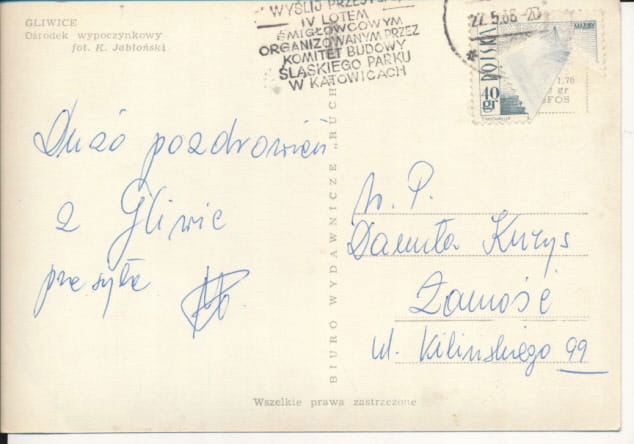 GLIWICE
Ośrodek wypoczynkowy
fot. K. Jabłoński
WYŚLIJ
IV LOTEM
ŚMIGŁOWCOWYM
ORGANIZOWANYM PRZEZ
KOMITET BUDOWY
ŚLĄSKIEGO PARKU
W KATOWICACH
27.5.66-20
POLSKA
40 gr
1.70
gr
Dużo pozdrowień
z Gliwic
przesyła
BIURO WYDAWNICZE „RUCH"
W. P.
Danuta Kurys
Zamość
ul. Kilińskiego 99
Wszelkie prawa zastrzeżone